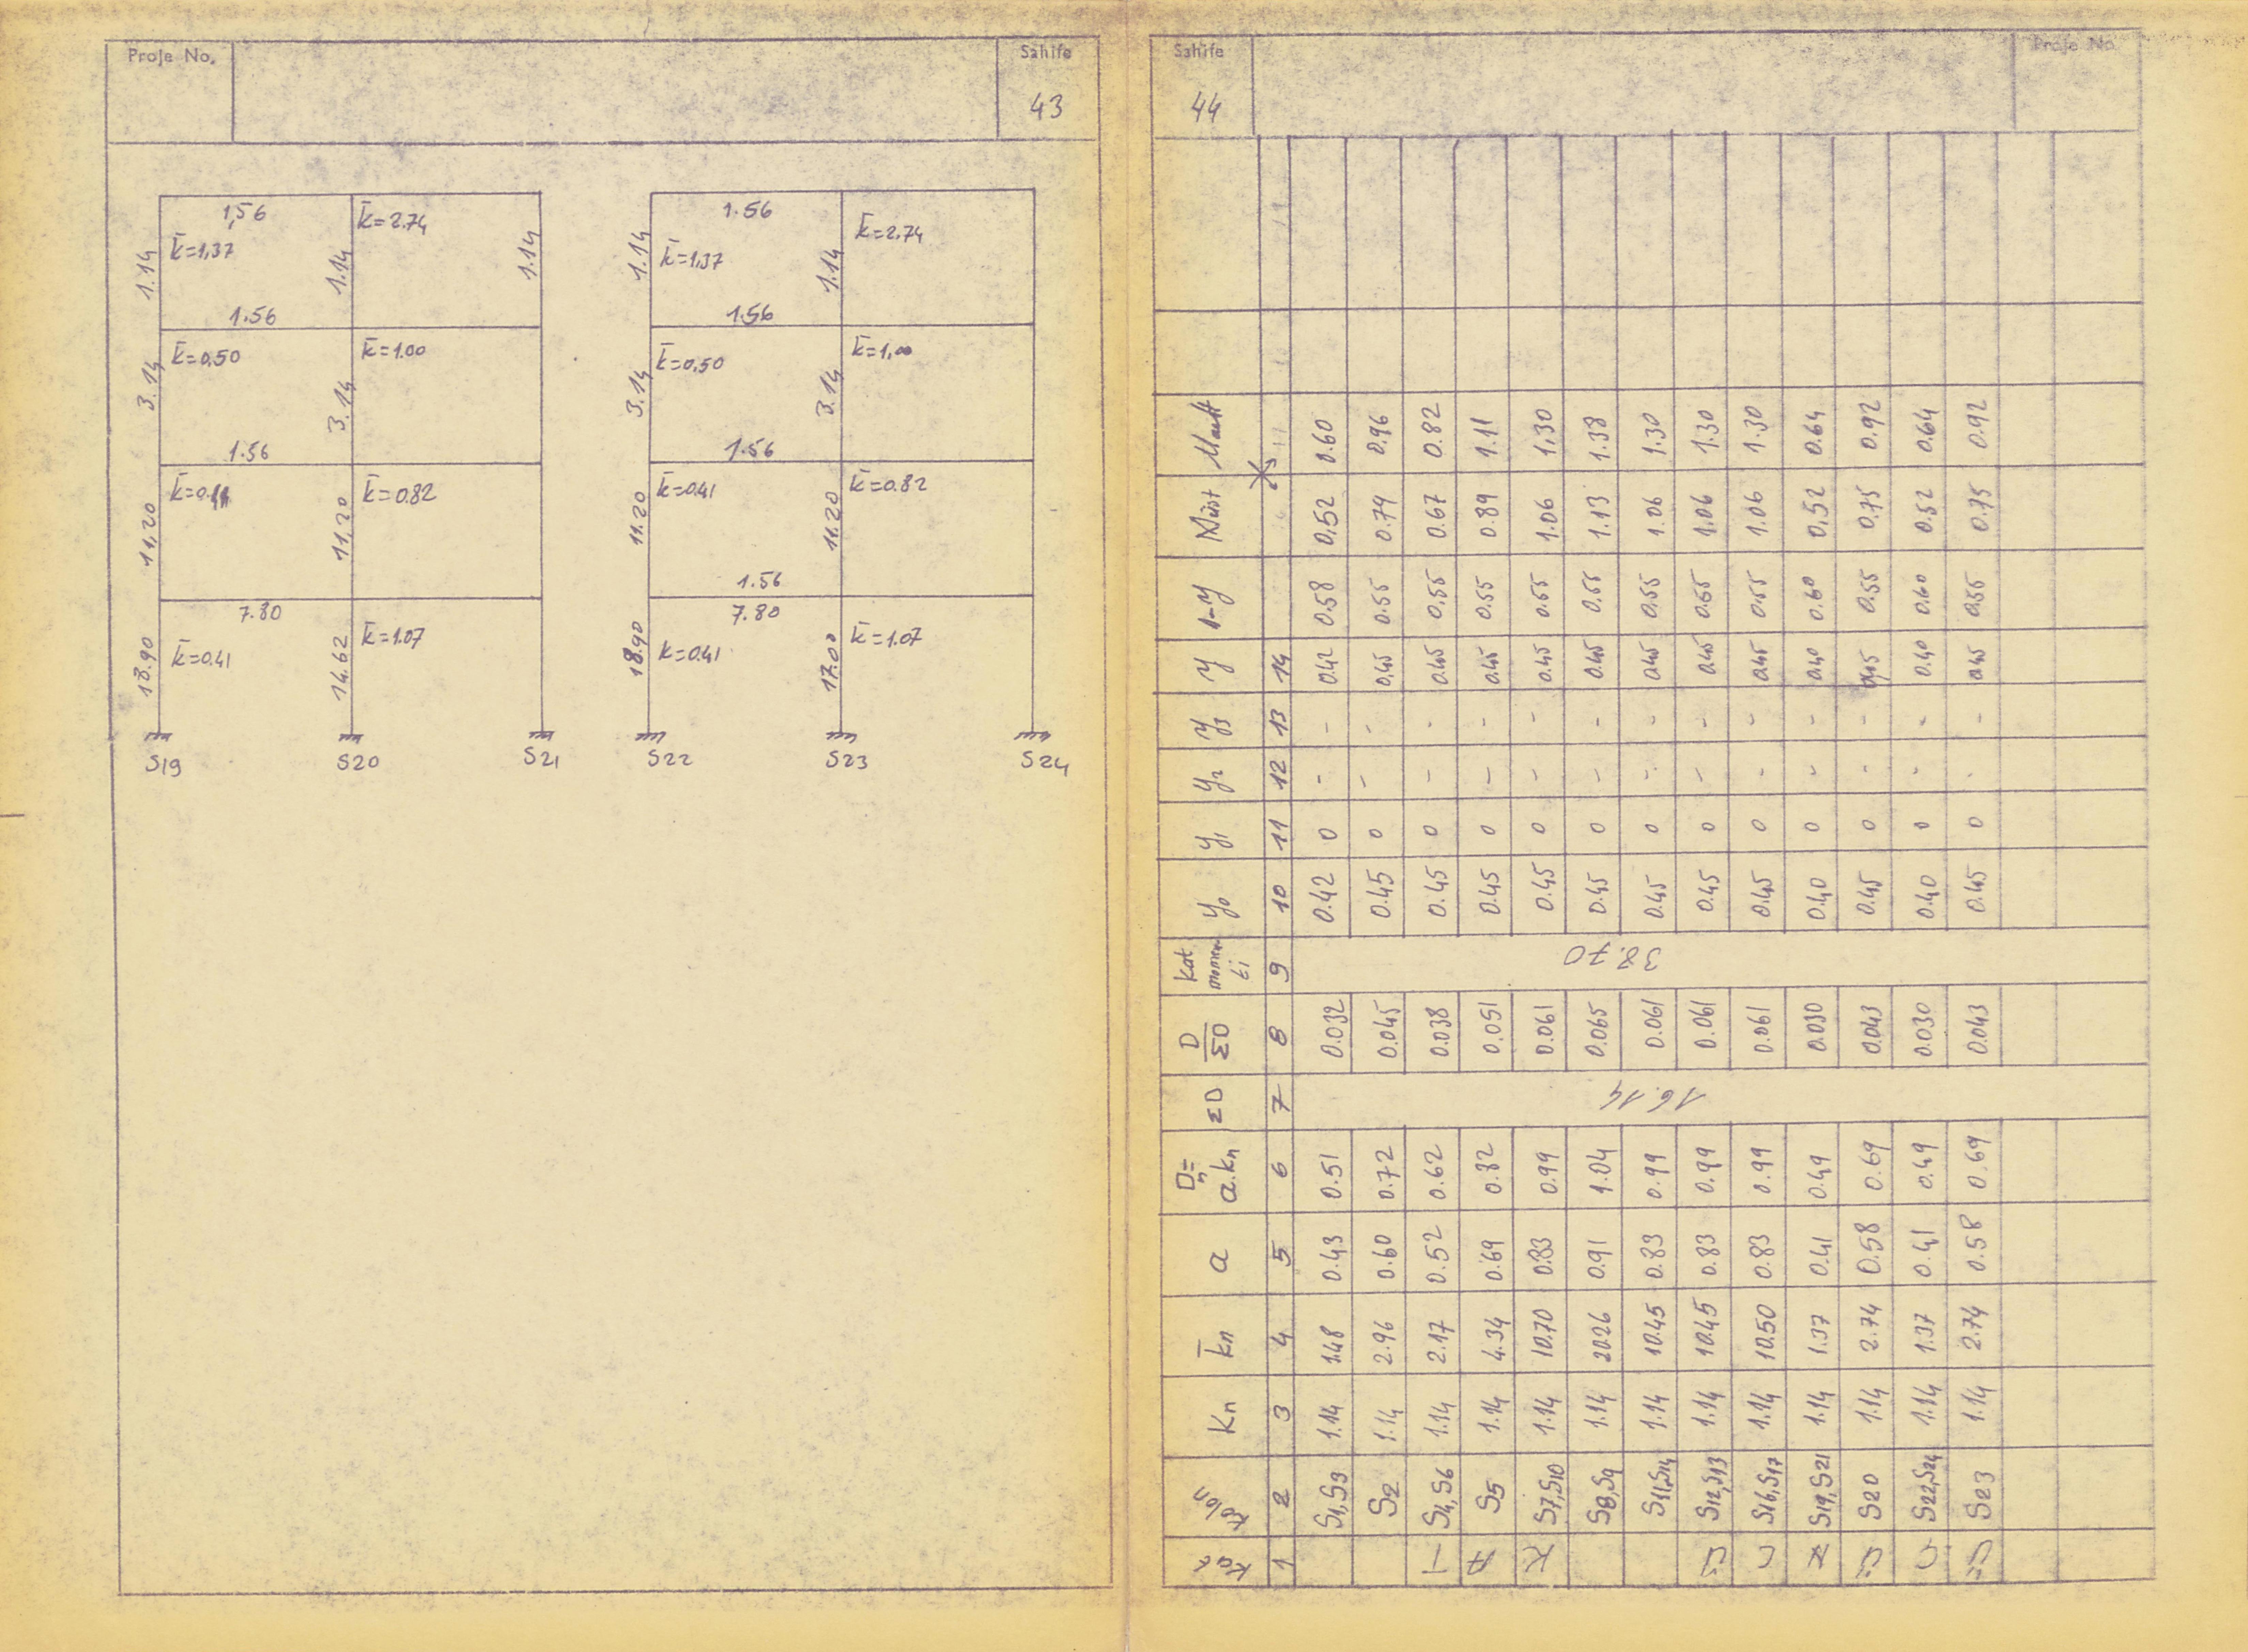 Proje No.
Sahife
43
1,56
k̄=2.74
k̄=1,37
1.14
1.14
1.14
1.56
k̄=0,50
k̄=1.00
3.14
3.14
1.56
k̄=0.82
11,20
11,20
7.80
k̄=0.41
k̄=1.07
18.90
14.62
S19
S20
S21
1.56
k̄=2.74
k̄=1,37
1.14
1.14
1.56
k̄=0,50
k̄=1,00
3.14
3.14
1.56
k̄=0.41
k̄=0.82
11.20
11.20
1.56
7.80
k=0.41
k̄=1.07
18.90
17.00
S22
S23
S24
Sahife
44
Proje No.
Kat Kolon Kn k̄n a Dn= a.kn ΣD D/ΣD Kat momenti y0 y1 y2 y3 y 1-y Müst Malt
1 2 3 4 5 6 7 8 9 10 11 12 13 14
S1,S3 1.14 1.48 0.43 0.51 0.032 0.42 0 - - 0.42 0.58 0.52 0.60
S2 1.14 2.96 0.60 0.72 0.045 0.45 0 - - 0.45 0.55 0.79 0.96
S4,S6 1.14 2.17 0.52 0.62 0.038 0.45 0 - - 0.45 0.55 0.67 0.82
S5 1.14 4.34 0.69 0.82 0.051 0.45 0 - - 0.45 0.55 0.89 1.11
S7,S10 1.14 10.70 0.83 0.99 0.061 0.45 0 - - 0.45 0.55 1.06 1,30
S8,S9 1.14 20.26 0.91 1.04 0.065 0.45 0 - - 0.45 0.55 1.13 1.38
S11,S14 1.14 10.45 0.83 0.99 0.061 0.45 0 - - 0.45 0.55 1.06 1.30
S12,S13 1.14 10.45 0.83 0.99 0.061 0.45 0 - - 0.45 0.55 1.06 1.30
S16,S17 1.14 10.50 0.83 0.99 0.061 0.45 0 - - 0.45 0.55 1.06 1.30
S19,S21 1.14 1.37 0.41 0.49 0.030 0.40 0 - - 0.40 0.60 0,52 0.64
S20 1.14 2.74 0.58 0.69 0.043 0.45 0 - - 0.45 0.55 0.75 0.92
S22,S24 1.14 1.37 0.41 0.49 0.030 0.40 0 - - 0.40 0.60 0.52 0.64
S23 1.14 2.74 0.58 0.69 0.043 0.45 0 - - 0.45 0.55 0.75 0.92
16.14
38.70